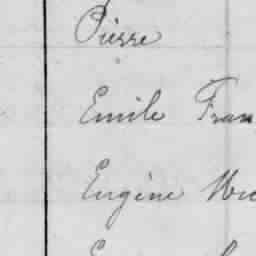 Pierre
Emile Fran
Eugène